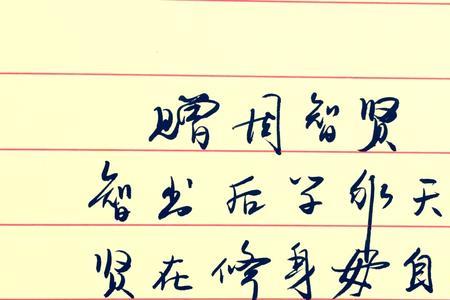 赠周智贤
智出后学非天
贤在修身自